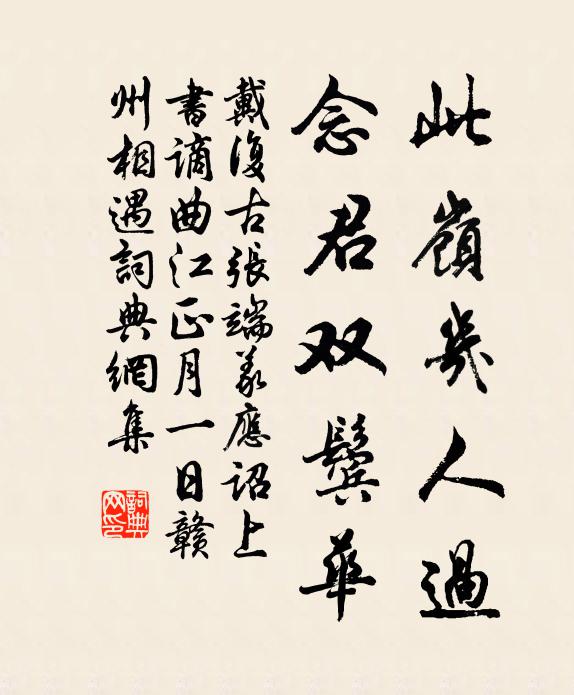 此嶺幾人過
念君双鬢華
戴復古張端義應詔上
書謫曲江正月一日贛
州相遇詞典網集
詞典网印